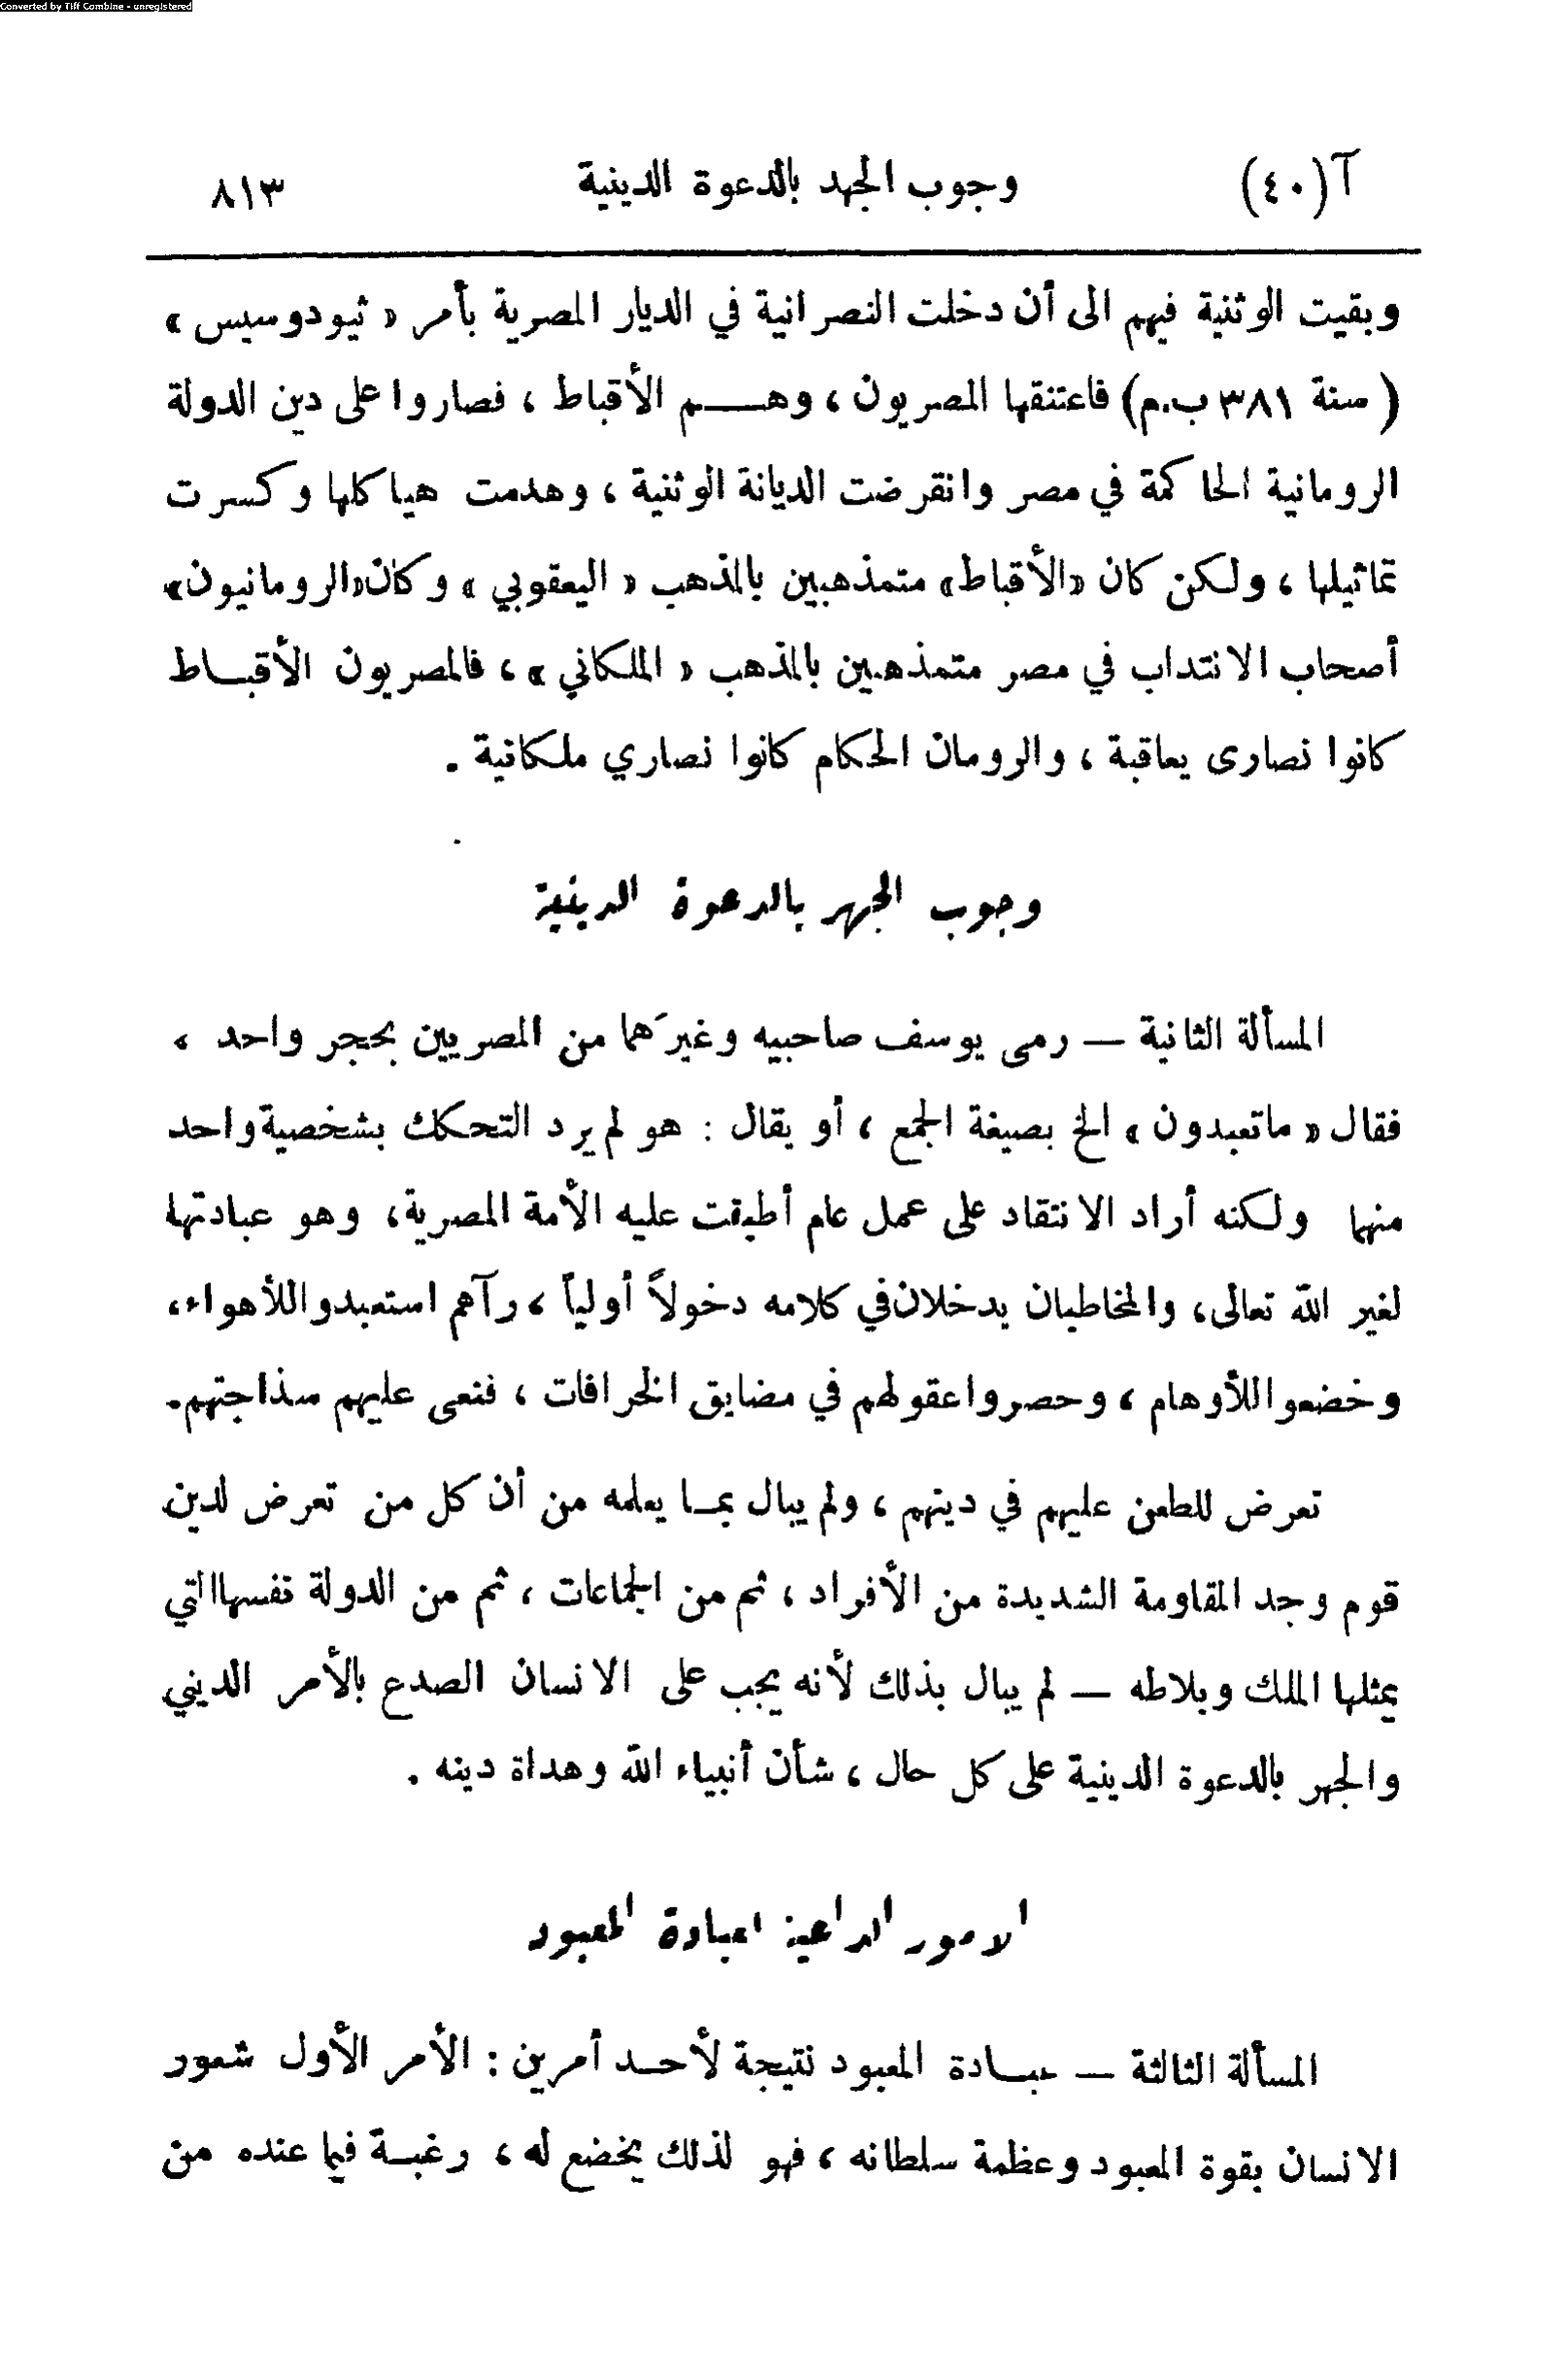 Converted by Tiff Combine - unregistered
آ(٤٠) وجوب الجهد بالدعوة الدينية ٨١٣
وبقيت الوثنية فيهم الى أن دخلت النصرانية في الديار المصرية بأمر « ثيودوسيس »
( سنة ٣٨١ ب.م) فاعتنقها المصريون ، وهم الأقباط ، فصاروا على دين الدولة
الرومانية الحاكمة في مصر وانقرضت الديانة الوثنية ، وهدمت هياكلها وكسرت
تماثيلها ، ولكن كان «الأقباط» متمذهبين بالمذهب « اليعقوبي » وكان «الرومانيون»
أصحاب الانتداب في مصر متمذهبين بالمذهب « الملكاني » ، فالمصريون الأقباط
كانوا نصارى يعاقبة ، والرومان الحكام كانوا نصاري ملكانية .
وجوب الجهر بالدعوة الدينية
المسألة الثانية — رمى يوسف صاحبيه وغيرَهما من المصريين بحجر واحد ،
فقال « ماتعبدون » الخ بصيغة الجمع ، أو يقال : هو لم يرد التحكك بشخصية واحد
منهما ولكنه أراد الانتقاد على عمل عام أطبقت عليه الأمة المصرية، وهو عبادتها
لغير الله تعالى، والمخاطبان يدخلان في كلامه دخولاً أولياً ، رآهم استعبدوا للأهواء،
وخضعوا للأوهام ، وحصروا عقولهم في مضايق الخرافات ، فنعى عليهم سذاجتهم.
تعرض للطعن عليهم في دينهم ، ولم يبال بما يعلمه من أن كل من تعرض لدين
قوم وجد المقاومة الشديدة من الأفراد ، ثم من الجماعات ، ثم من الدولة نفسها التي
يمثلها الملك وبلاطه — لم يبال بذلك لأنه يجب على الانسان الصدع بالأمر الديني
والجهر بالدعوة الدينية على كل حال ، شأن أنبياء الله وهداة دينه .
الامور الداعية لعبادة المعبود
المسألة الثالثة — عبادة المعبود نتيجة لأحد أمرين : الأمر الأول شعور
الانسان بقوة المعبود وعظمة سلطانه ، فهو لذلك يخضع له ، رغبة فيما عنده من